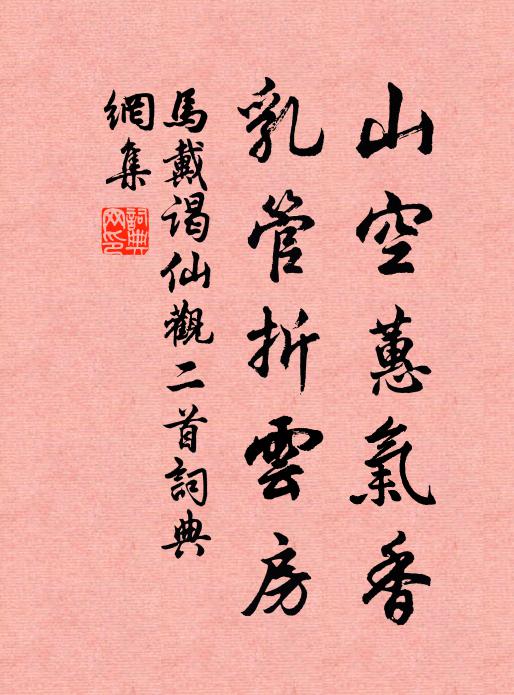 山空蕙氣香
乳管折雲房
馬戴謁仙觀二首詞典
網集
詞典網印